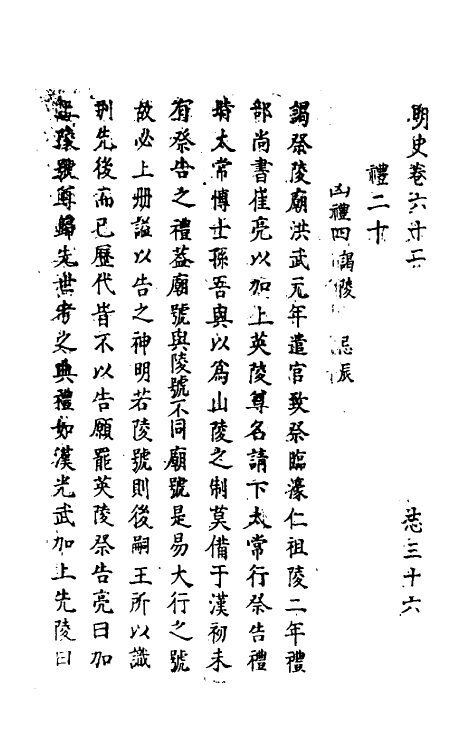 明史卷六十二 志三十六
禮二十
凶禮四 謁陵 忌辰
謁祭陵廟洪武元年遣官致祭臨濠仁祖陵二年禮
部尚書崔亮以加上英陵尊名請下太常行祭告禮
時太常博士孫吾與以為山陵之制莫備于漢初未
有祭告之禮葢廟號與陵號不同廟號是易大行之號
故必上册諡以告之神明若陵號則後嗣王所以識
別先後而已歷代皆不以告願罷英陵祭告亮曰加
陵號尊歸先世考之典禮如漢光武加上先陵曰